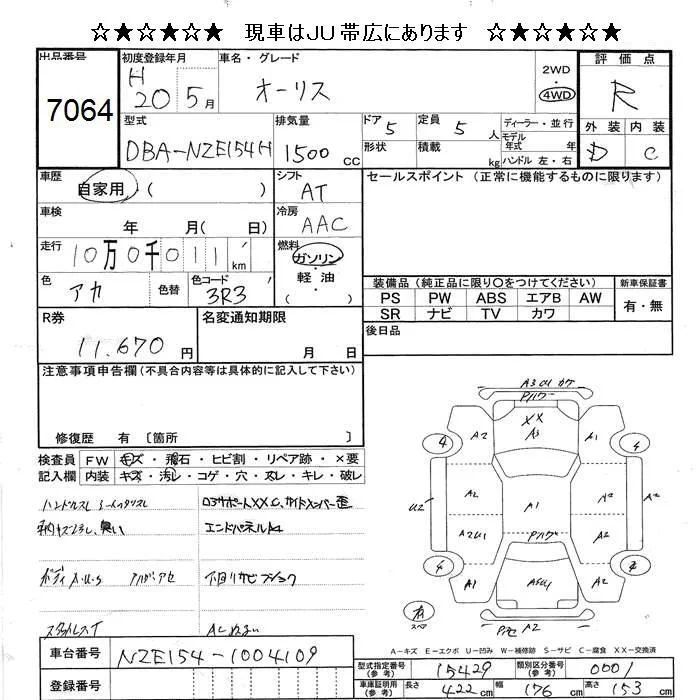 ☆★☆★☆★ 現車はＪＵ帯広にあります ☆★☆★☆★
出品番号 7064
初度登録年月 H 20 5月
車名・グレード オーリス
2WD
4WD
評価点 R
外装 D 内装 C
型式 DBA-NZE154H
排気量 1500 cc
ドア 5 定員 5 人
形状 積載 kg
ディーラー・並行
モデル年式 年式
ハンドル 左・右
車歴 自家用 ( )
シフト AT
セールスポイント (正常に機能するものに限ります)
車検 年 月( 日)
冷房 AAC
走行 10万0千011 km
燃料 ガソリン・軽油 ( )
色 アカ 色替 色コード 3R3
装備品 (純正品に限り〇をつけてください) 新車保証書
PS PW ABS エアB AW 有・無
SR ナビ TV カワ
R券 11.670 円
名変通知期限 月 日
後日品
注意事項申告欄 (不具合内容等は具体的に記入して下さい)
修復歴 有 〔箇所 〕
検査員 FW キズ・飛石・ヒビ割・リペア跡・×要
記入欄 内装 キズ・汚レ・コゲ・穴・スレ・キレ・破レ
ハンドルスレ シートヘタリスレ
内キズ汚れ、臭い
ボディ A・U・S
スタッドレスT
エンドパネルA2
下回リサビ
A3 U1 カケ
XX
A3
A2
A1
4
A2
U2
A1
A2
A2U1
A2
A1
有
スペア
A2
A－キズ E－エクボ U－凹み W－補修跡 S－サビ C－腐食 XX－交換済
車台番号 NZE154-1004109
型式指定番号 (参考) 15429 類別区分番号 (参考) 0001
登録番号
車庫証明用 (参考) 長さ 422 cm 幅 176 cm 高さ 153 cm